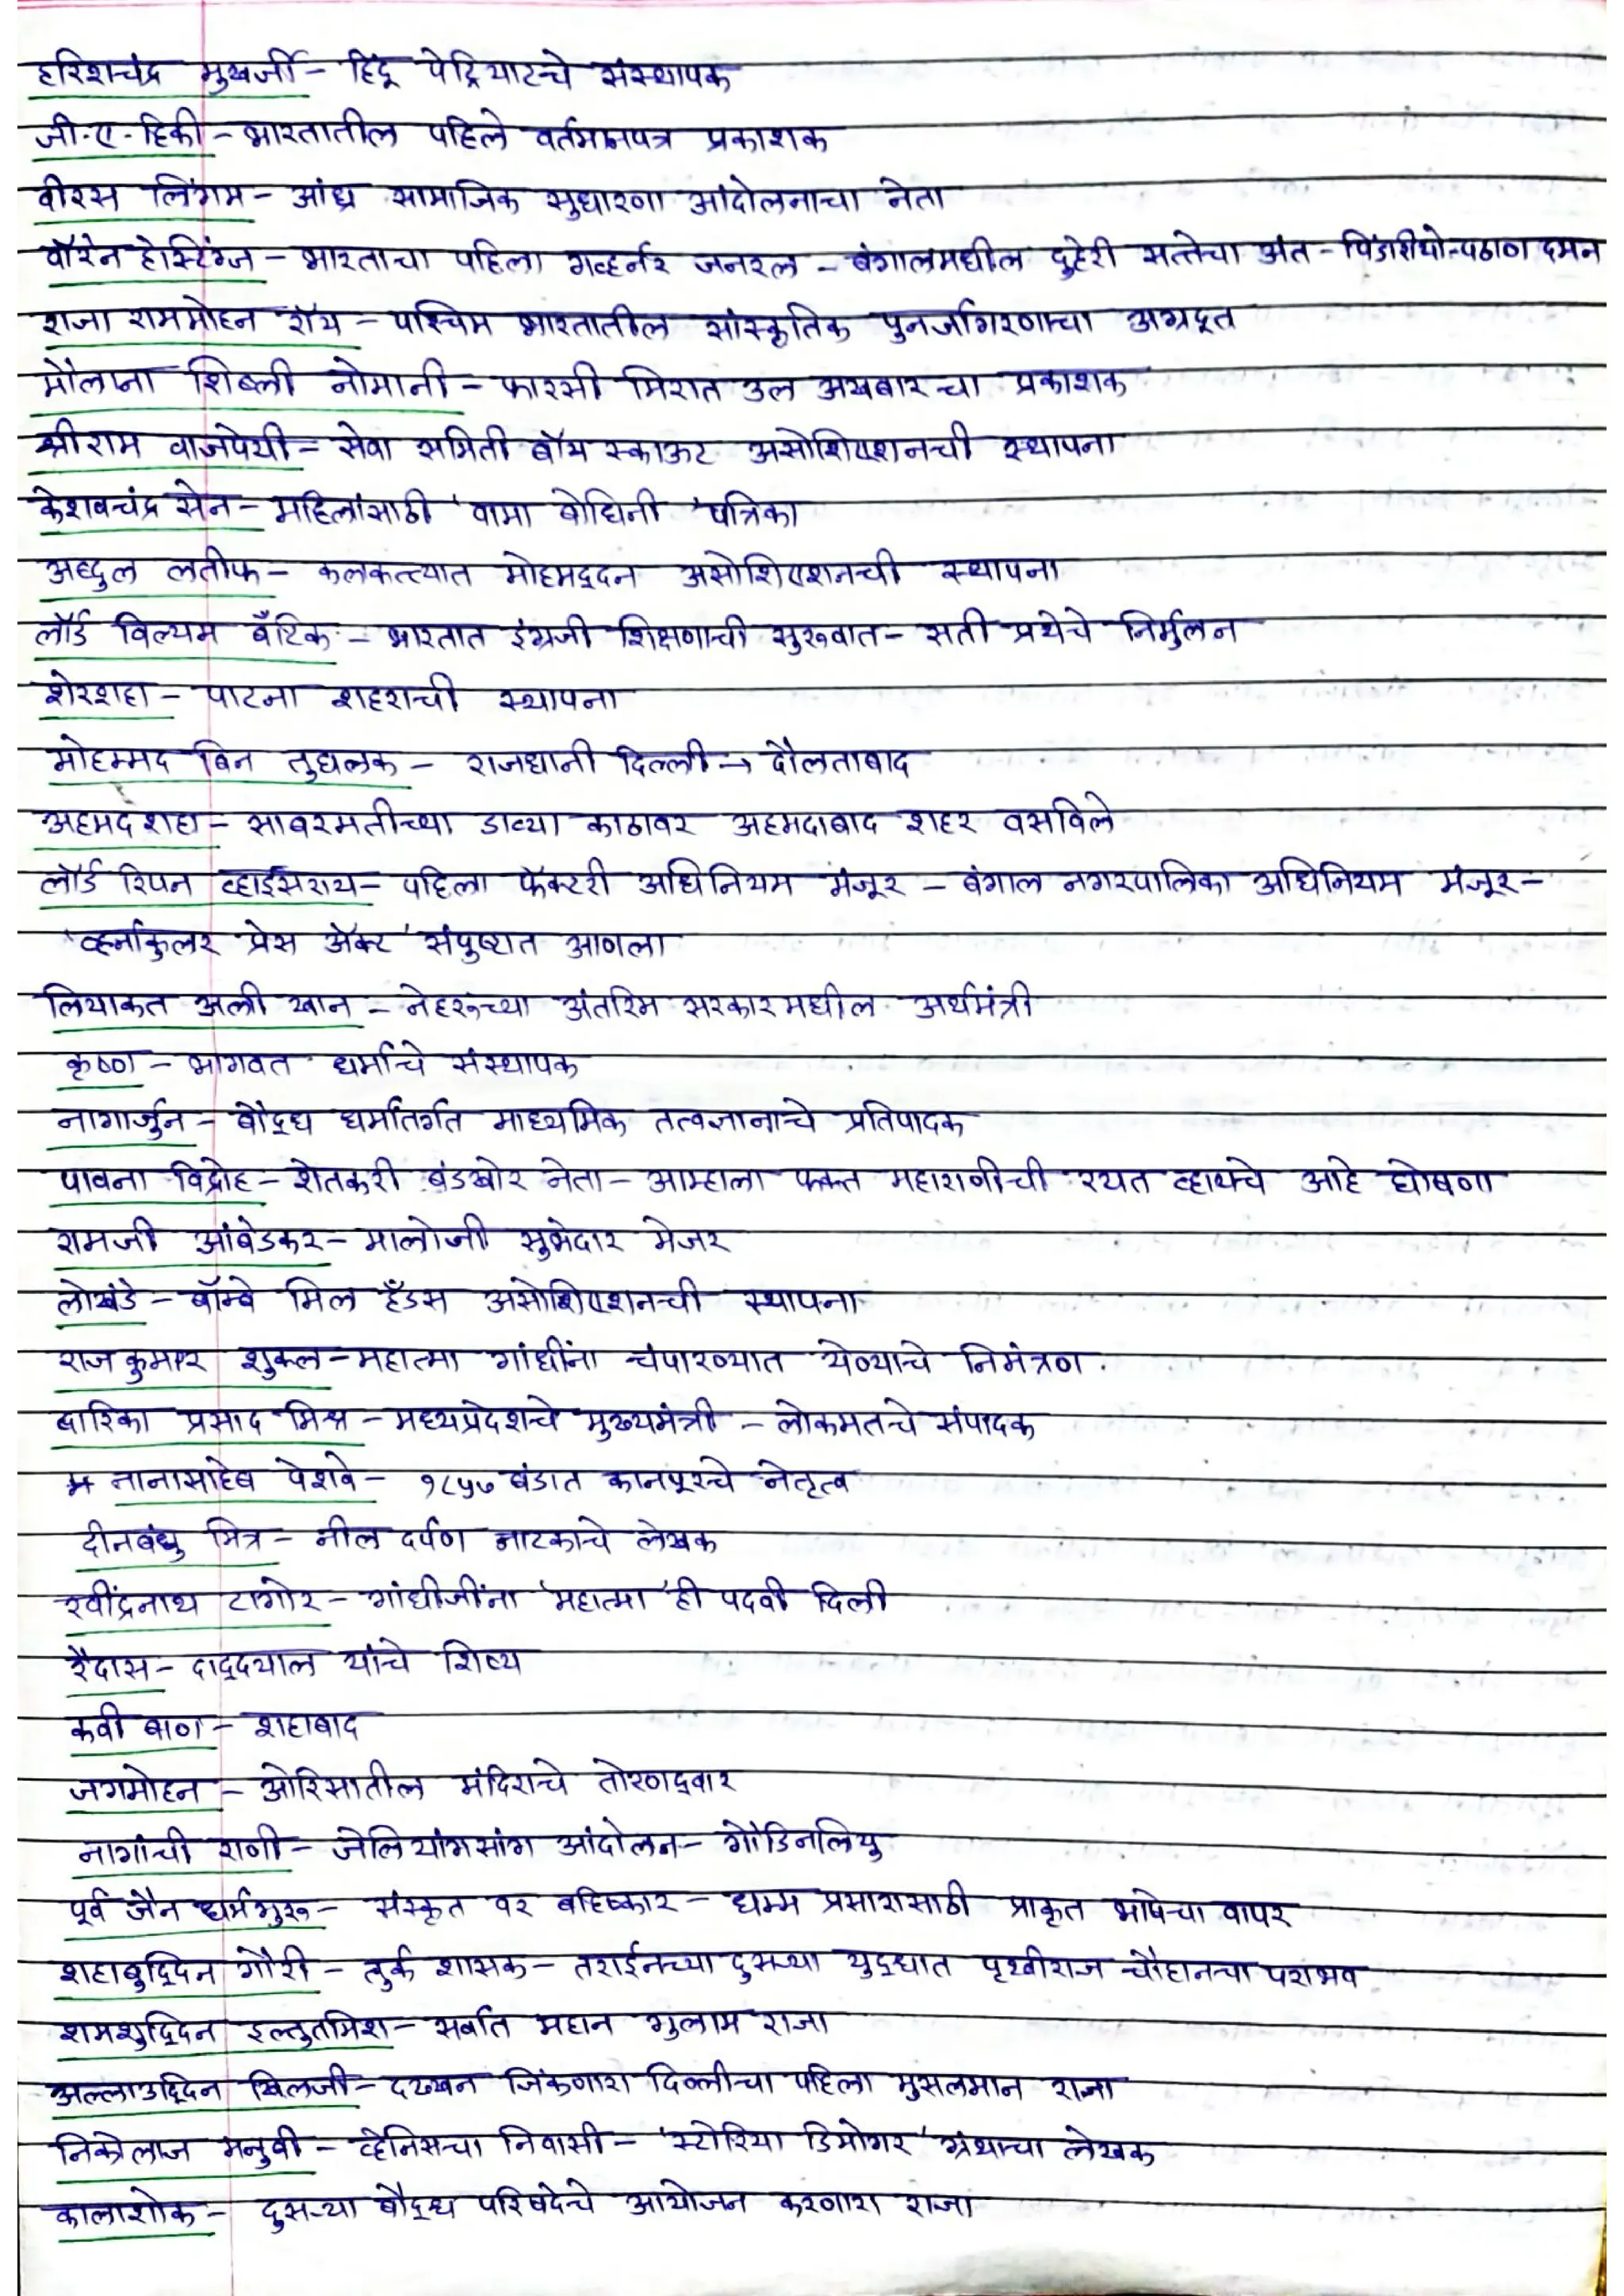 हरिशचंद्र मुखर्जी - हिंदू पेट्रियाटचे संस्थापक
जी.ए.हिकी - भारतातील पहिले वर्तमानपत्र प्रकाशक
वीरस लिंगम - आंध्र सामाजिक सुधारणा आंदोलनाचा नेता
वॉरेन हेस्टिंग्ज - भारताचा पहिला गव्हर्नर जनरल - बंगालमधील दुहेरी सत्तेचा अंत - पिंडारियो-पठाण दमन
राजा राममोहन रॉय - पश्चिम भारतातील सांस्कृतिक पुनर्जागरणाचा अग्रदूत
मौलाना शिब्ली नोमानी - फारसी मिरात उल अखबारचा प्रकाशक
श्रीराम वाजपेयी - सेवा समिती बॉय स्काऊट असोशिएशनची स्थापना
केशवचंद्र सेन - महिलांसाठी 'वामा बोधिनी' पत्रिका
अब्दुल लतीफ - कलकत्त्यात मोहमद्दन असोशिएशनची स्थापना
लॉर्ड विल्यम बँटिक - भारतात इंग्रजी शिक्षणाची सुरुवात - सती प्रथेचे निर्मुलन
शेरशहा - पाटना शहराची स्थापना
मोहम्मद बिन तुघलक - राजधानी दिल्ली → दौलताबाद
अहमदशहा - साबरमतीच्या डाव्या काठावर अहमदाबाद शहर वसविले
लॉर्ड रिपन व्हाईसराय - पहिला फॅक्टरी अधिनियम मंजूर - बंगाल नगरपालिका अधिनियम मंजूर -
'व्हर्नाकुलर प्रेस ॲक्ट' संपुष्टात आणला
लियाकत अली खान - नेहरूच्या अंतरिम सरकारमधील अर्थमंत्री
कृष्ण - भागवत धर्माचे संस्थापक
नागार्जुन - बौद्ध धर्मातर्गत माध्यमिक तत्वज्ञानाचे प्रतिपादक
पावना विद्रोह - शेतकरी बंडखोर नेता - आम्हाला फक्त महाराणीची रयत व्हायचे आहे घोषणा
रामजी आंबेडकर - मालोजी सुभेदार मेजर
लोखंडे - बॉम्बे मिल हँडस असोशिएशनची स्थापना
राजकुमार शुक्ल - महात्मा गांधींना चंपारण्यात येण्याचे निमंत्रण.
द्वारिका प्रसाद मिश्र - मध्यप्रदेशचे मुख्यमंत्री - लोकमतचे संपादक
नानासाहेब पेशवे - १८५७ बंडात कानपूरचे नेतृत्व
दीनबंधु मित्र - नील दर्पण नाटकाचे लेखक
रवींद्रनाथ टागोर - गांधीजींना 'महात्मा' ही पदवी दिली
रैदास - दादूदयाल यांचे शिष्य
कवी बाण - शहाबाद
जगमोहन - ओरिसातील मंदिराचे तोरणद्वार
नागांची राणी - जेलियांगसांग आंदोलन - गोंडिनलियु
पूर्व जैन धर्मगुरू - संस्कृत वर बहिष्कार - धम्म प्रसारासाठी प्राकृत भाषेचा वापर
शहाबुद्दिन गौरी - तुर्क शासक - तराईनच्या दुसऱ्या युद्धात पृथ्वीराज चौहानचा पराभव
शमशुद्दिन इल्तुतमिश - सर्वात महान गुलाम राजा
अल्लाउद्दिन खिलजी - दख्खन जिंकणारा दिल्लीचा पहिला मुसलमान राजा
निकोलाज मनुची - व्हेनिसचा निवासी - 'स्टोरिया डिमोगर' ग्रंथाचा लेखक
कालाशोक - दुसऱ्या बौद्ध परिषदेचे आयोजन करणारा राजा